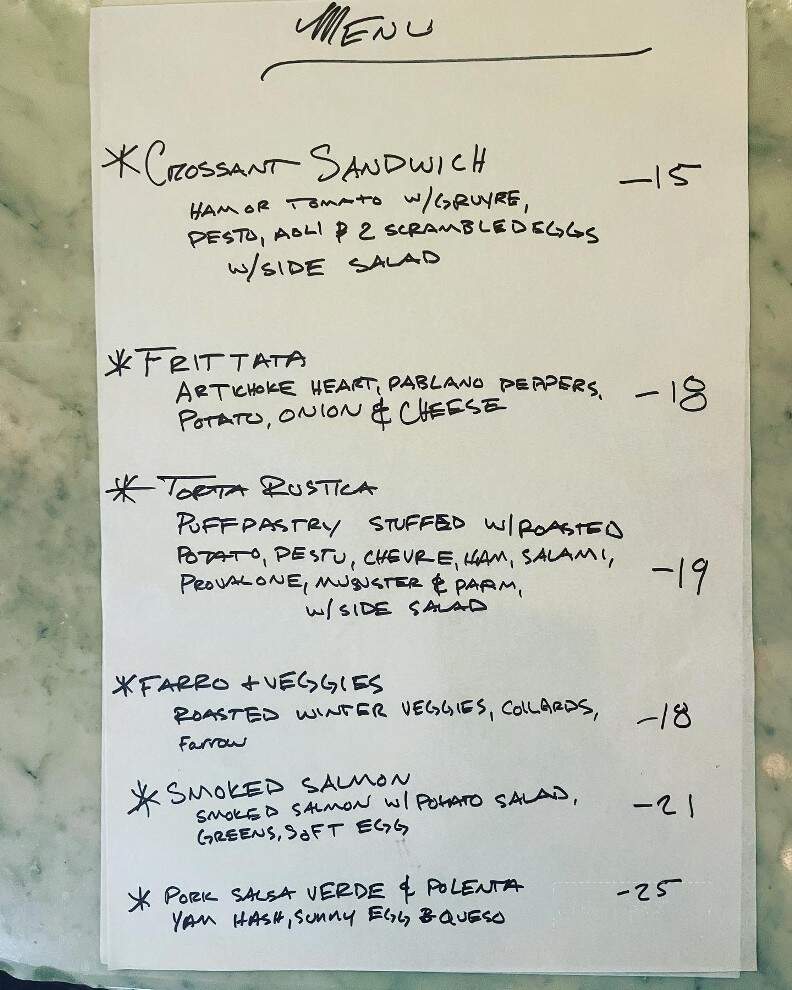 MENU
* CROSSANT SANDWICH -15
HAM OR TOMATO W/GRUYRE,
PESTO, AOLI & 2 SCRAMBLED EGGS
W/SIDE SALAD
* FRITTATA
ARTICHOKE HEART, PABLANO PEPPERS, -18
POTATO, ONION & CHEESE
* TORTA RUSTICA
PUFFPASTRY STUFFED W/ROASTED
POTATO, PESTO, CHEVRE, HAM, SALAMI, -19
PROVALONE, MUSNSTER & PARM,
W/SIDE SALAD
* FARRO + VEGGIES
ROASTED WINTER VEGGIES, COLLARDS, -18
Farrow
* SMOKED SALMON
SMOKED SALMON W/ POTATO SALAD, -21
GREENS, SOFT EGG
* PORK SALSA VERDE & POLENTA -25
YAM HASH, SUNNY EGG & QUESO